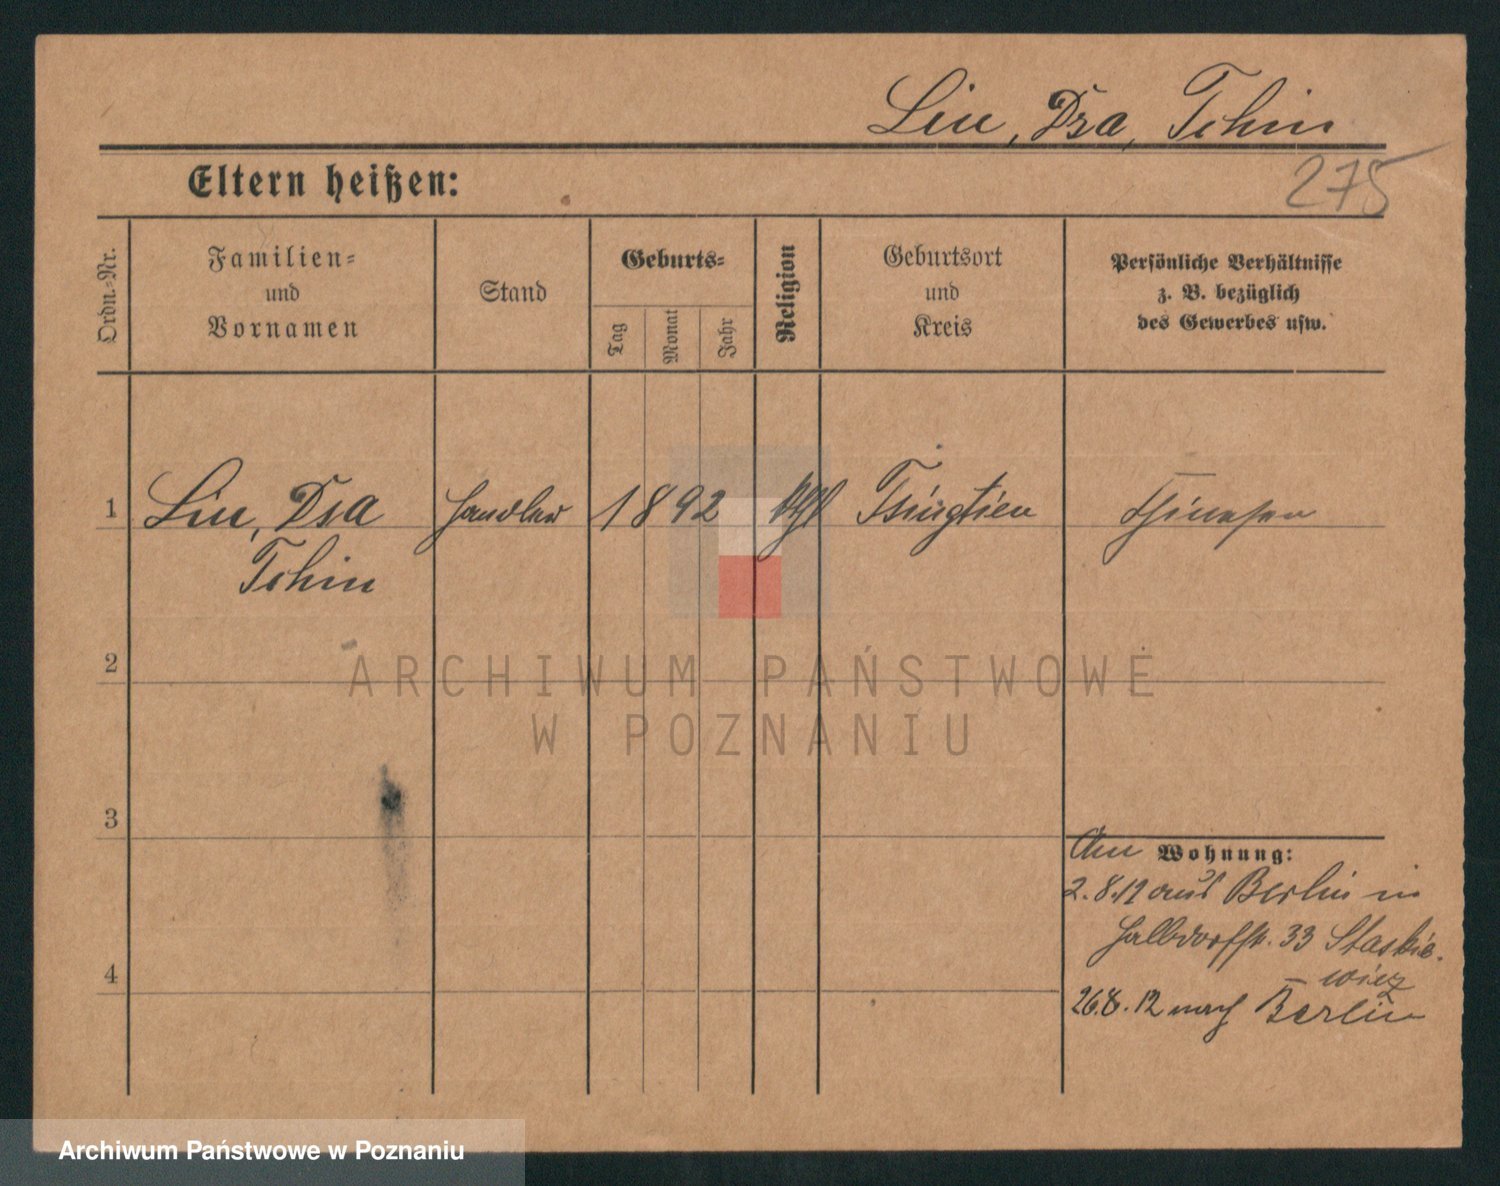 Liu, Dsa, Tchin
275
Eltern heißen:
Ordn.-Nr.
Familien-
und
Vornamen
Stand
Geburts-
Tag
Monat
Jahr
Religion
Geburtsort
und
Kreis
Persönliche Verhältnisse
z. B. bezüglich
des Gewerbes usw.
1 Liu, Dsa Handler 1892 Tsingtien Chinesen
Tchin
2
3
4
Am Wohnung:
2.8.12 aus Berlin in
Halbdorfstr. 33 Staskie-
wicz
26.8.12 nach Berlin
ARCHIWUM PAŃSTWOWE
W POZNANIU
Archiwum Państwowe w Poznaniu